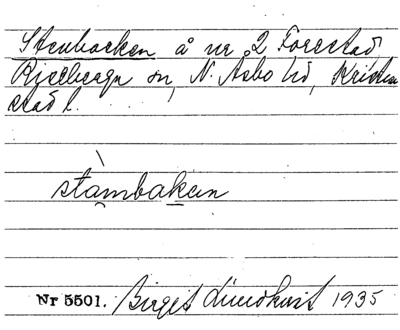 Stenbacken å nr 2 Forestad
Riseberga sn, N. Åsbo hd, Kristian
stad l.
stambaken
Nr 5501. Birgit Lundkvist 1935